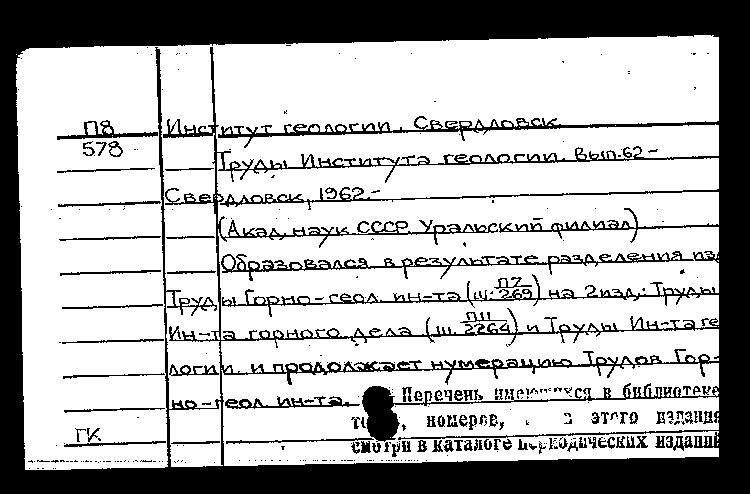 П8 Институт геологии. Свердловск.
578 Труды Института геологии. Вып. 62 –
Свердловск, 1962. –
(Акад. наук СССР. Уральский филиал)
Образовался в результате разделения изд
Труды Горно-геол. ин-та (ш. П7/269) на 2 изд.: Труды
Ин-та горного дела (ш. П11/2264) и Труды Ин-та ге
логии. и продолжает нумерацию Трудов Гор-
но-геол. ин-та. Перечень имеющихся в библиотеке
номеров, этого издания
ГК смотри в каталоге периодических изданий